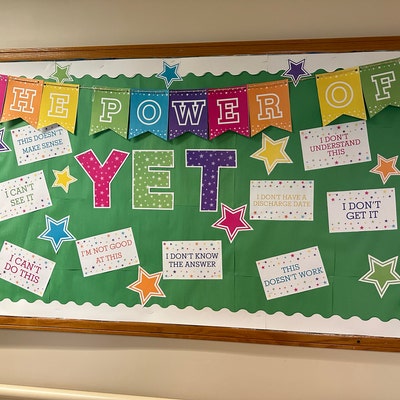 THE POWER OF
YET
THIS DOESN'T
MAKE SENSE
I DON'T
UNDERSTAND
THIS
I CAN'T
SEE IT
I DON'T HAVE A
DISCHARGE DATE
I DON'T
GET IT
I'M NOT GOOD
AT THIS
I DON'T KNOW
THE ANSWER
I CAN'T
DO THIS
THIS
DOESN'T WORK